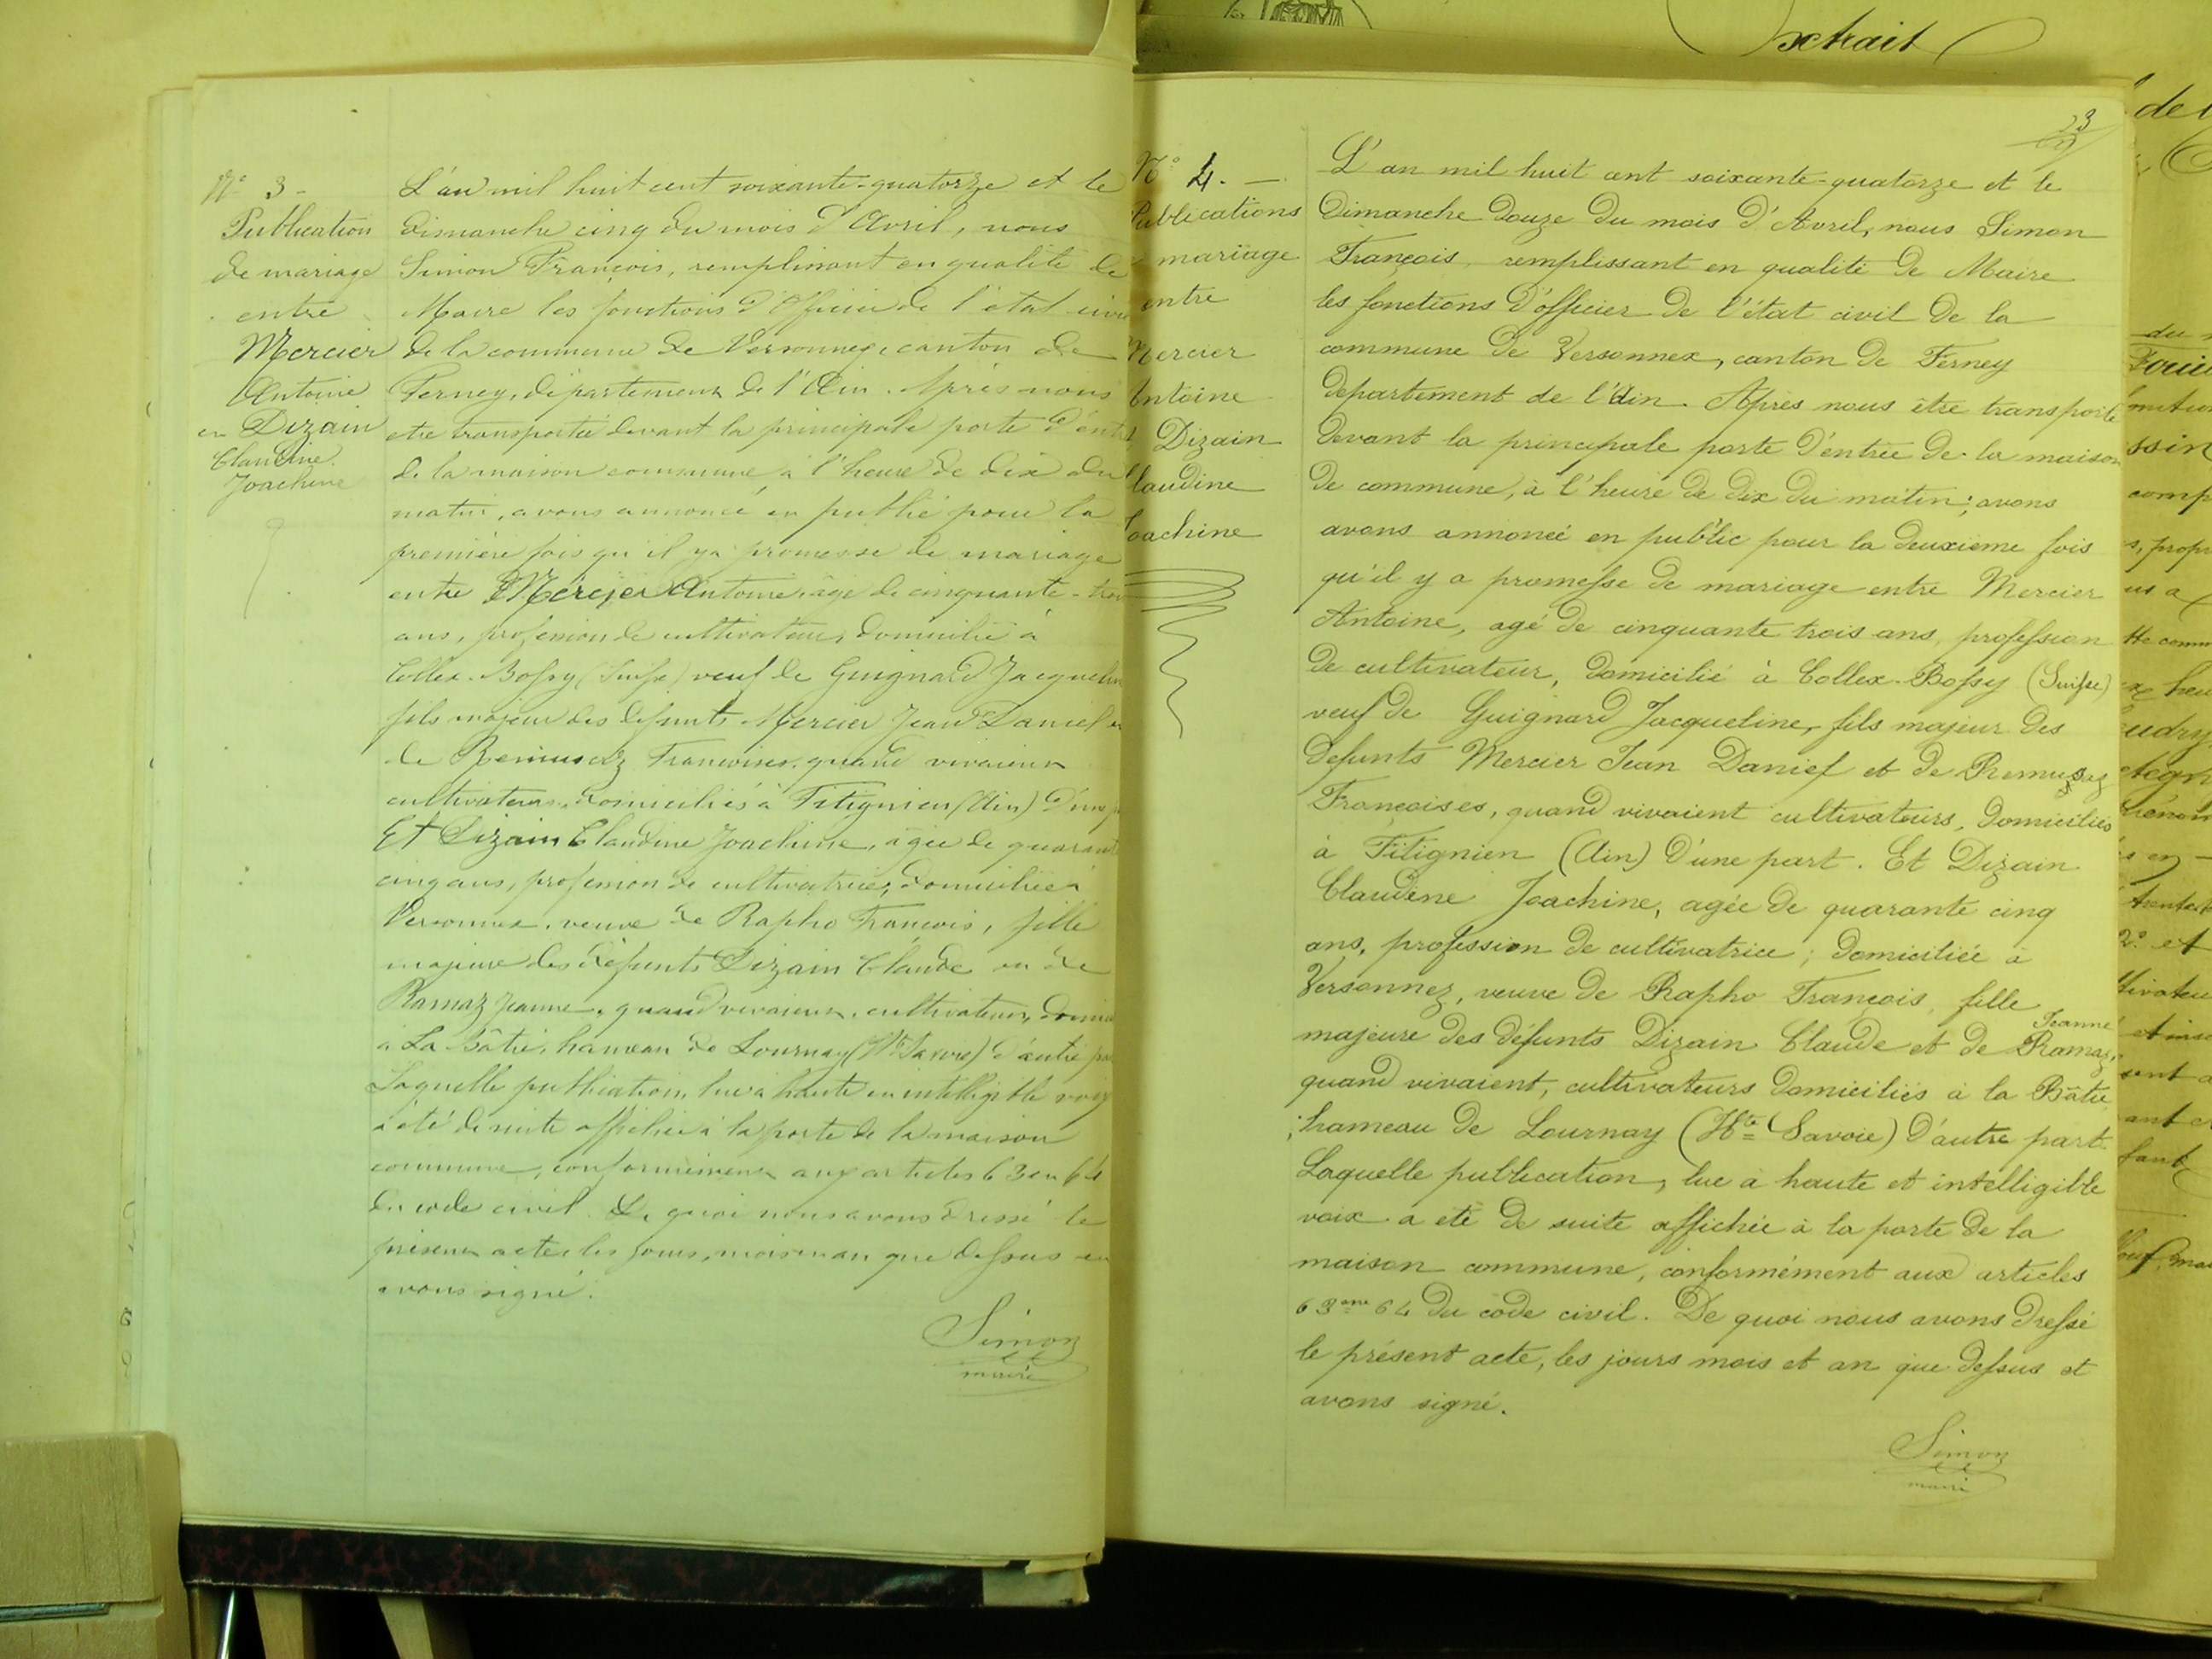 N° 3 -
Publication
de mariage
entre
Mercier
Antoine
et Dizain
Claudine
Joachine
L'an mil huit cent soixante-quatorze et le
Dimanche cinq du mois d'Avril, nous
Simon François, remplissant en qualité de
Maire les fonctions d'Officier de l'état civil
de la commune de Versonnex, canton de
Ferney, département de l'Ain. Après nous
etre transporté devant la principale porte d'entr
de la maison commune, à l'heure de dix du
matin, avons annoncé en public pour la
première fois qu'il y a promesse de mariage
entre Mercier Antoine, âgé de cinquante-trois
ans, profession de cultivateur, domicilié à
Collex-Bossy (Suisse) veuf de Guignard Jacqueline
fils majeur des defunts Mercier Jean Daniel et
de Remusaz Francoises, quand vivaient
cultivateurs, domiciliés à Fitignieu (Ain) d'une p
Et Dizain Claudine Joachine, âgée de quarante
cinq ans, profession de cultivatrice, domiciliée à
Versonnex, veuve de Rapho François, fille
majeure des défunts Dizain Claude et de
Ramaz Jeanne, quand vivaient, cultivateurs, domic
à La Bâtie, hameau de Lournay (Hte Savoie) d'autre par
Laquelle publication, lue à haute et intelligible voix
a été de suite affichée à la porte de la maison
commune, conformément aux articles 63 et 64
du code civil. De quoi nous avons dressé le
présent acte les jours, mois et an que dessus et
avons signé.
Simon
maire
3
N° 4. -
Publications
mariage
entre
Mercier
Antoine
Dizain
Claudine
Joachine
L'an mil huit cent soixante-quatorze et le
Dimanche douze du mois d'Avril, nous Simon
François remplissant en qualité de Maire
les fonctions d'officier de l'état civil de la
commune de Versonnex, canton de Ferney
département de l'Ain. Après nous être transporté
devant la principale porte d'entrée de la maison
de commune, à l'heure de dix du matin; avons
avons annoncé en public pour la deuxième fois
qu'il y a promesse de mariage entre Mercier
Antoine, agé de cinquante trois ans, profession
de cultivateur, domicilié à Collex-Bossy (Suisse)
veuf de Guignard Jacqueline, fils majeur des
defunts Mercier Jean Danief et de Remusaz
Françoises, quand vivaient cultivateurs, domiciliés
à Fitignien (Ain) d'une part. Et Dizain
Claudine Joachine, agée de quarante cinq
ans, profession de cultivatrice; domiciliée à
Versonnez, veuve de Rapho François, fille
majeure des défunts Dizain Claude et de Ramaz, Jeanne
quand vivaient, cultivateurs domiciliés à la Bâtie
hameau de Lournay (Hte Savoie) d'autre part
Laquelle publication, lue à haute et intelligible
voix a eté de suite affichée à la porte de la
maison commune, conformément aux articles
63 64 du code civil. De quoi nous avons dressé
le présent acte, les jours mois et an que dessus et
avons signé.
Simon
maire
Extrait
de